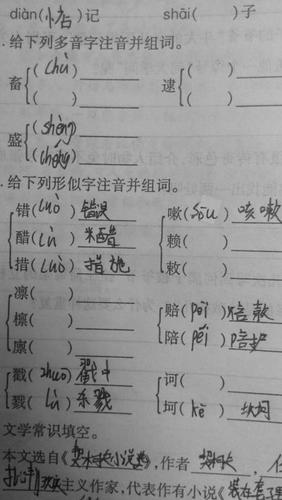 diàn(惦)记 shāi( )子
.给下列多音字注音并组词。
畜 (chù)
( )
逮 ( )
( )
盛 (shèng)
(chéng)
.给下列形似字注音并组词。
错(cuò)错误
醋(cù)米醋
措(cuò)措施
嗽(sòu)咳嗽
赖( )
敕( )
凛( )
檩( )
廪( )
赔(péi)赔款
陪(péi)陪护
戳(chuō)戳中
戮(lù)杀戮
诃( )
坷(kě)坎坷
文学常识填空。
本文选自《 小说选》,作者
主义作家,代表作有小说《装在套子里